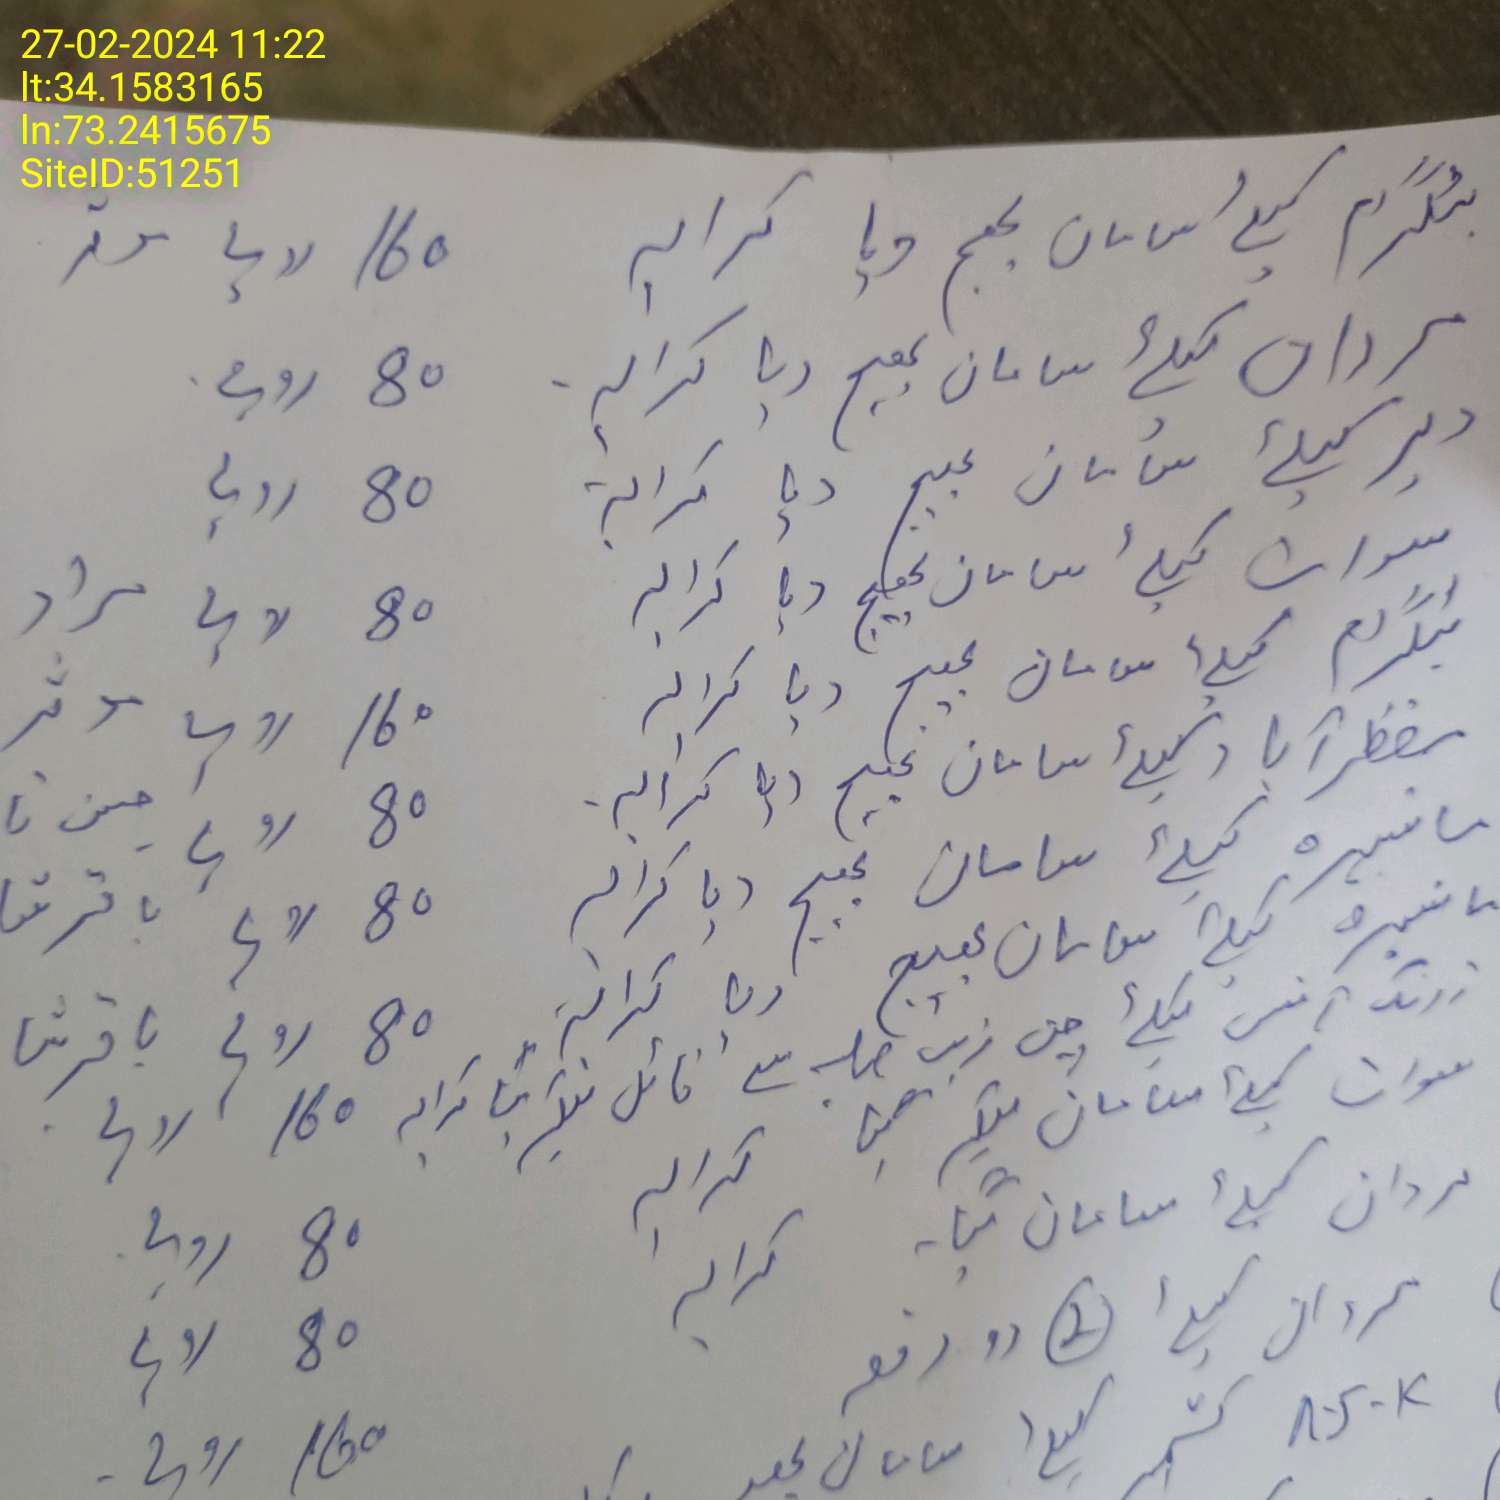 27-02-2024 11:22
lt:34.1583165
ln:73.2415675
SiteID:51251
بٹگرام کیلئے سامان بھیج دیا کرایہ 160 روپے
مردان کیلئے سامان بھیج دیا کرایہ - 80 روپے
دیر کیلئے سامان بھیج دیا کرایہ 80 روپے
سوات کیلئے سامان بھیج دیا کرایہ 80 روپے مراد
بٹگرام کیلئے سامان بھیج دیا کرایہ 160 روپے
مظفرآباد کیلئے سامان بھیج دیا کرایہ - 80 روپے
مانسہرہ کیلئے سامان بھیج دیا کرایہ 80 روپے باقر شا
مانسہرہ کیلئے سامان بھیج دیا کرایہ 80 روپے باقر شا
آفس کیلئے سے فائل لیکر گیا کرایہ 160 روپے
سوات کیلئے سامان لیکر گیا کرایہ 80 روپے
مردان کیلئے سامان گیا - کرایہ 80 روپے
مردان کیلئے 2 دو دفعہ 160 روپے -
کشمیر کیلئے سامان